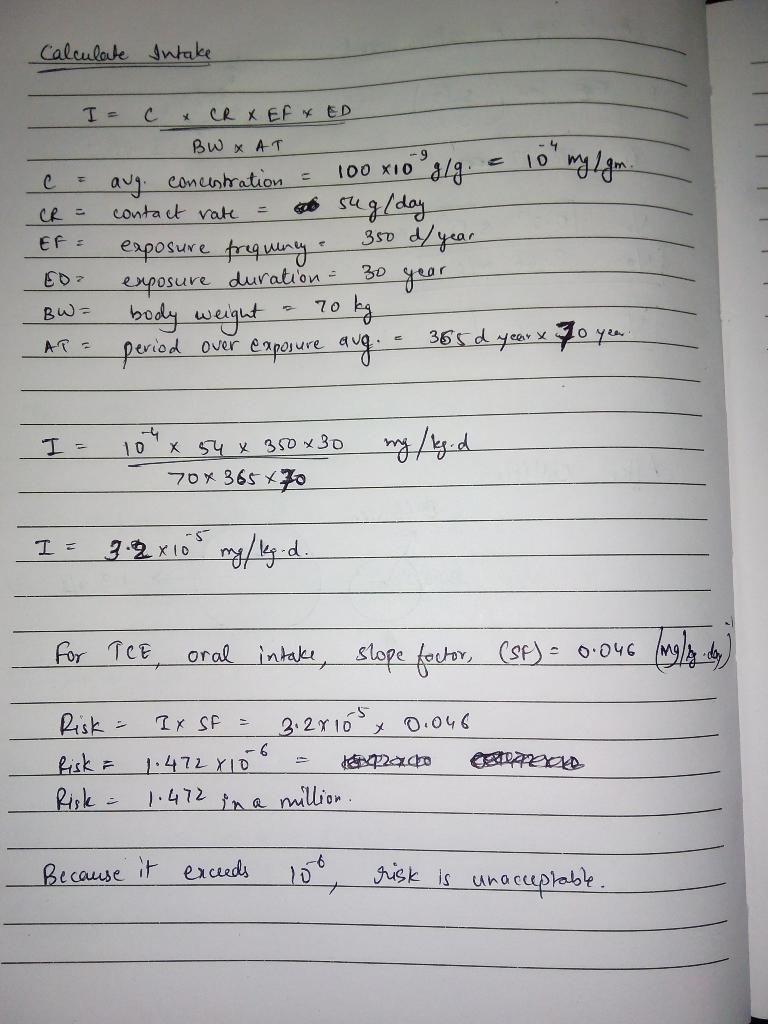 Calculate Intake
I = C x CR x EF x ED
BW x AT
C = avg. concentration = 100 x10⁻⁹ g/g. = 10⁻⁴ mg/gm.
CR = contact rate = 54 g/day
EF = exposure frequency = 350 d/year
ED = exposure duration = 30 year
BW = body weight = 70 kg
AT = period over exposure avg. = 365 d year x 70 year.
I = 10⁻⁴ x 54 x 350 x 30 mg/kg.d
70 x 365 x 70
I = 3.2 x 10⁻⁵ mg/kg.d.
For TCE, oral intake, slope factor, (SF) = 0.046 (mg/kg.day)⁻¹
Risk = I x SF = 3.2 x 10⁻⁵ x 0.046
Risk = 1.472 x 10⁻⁶ =
Risk = 1.472 in a million.
Because it exceeds 10⁻⁶, risk is unacceptable.